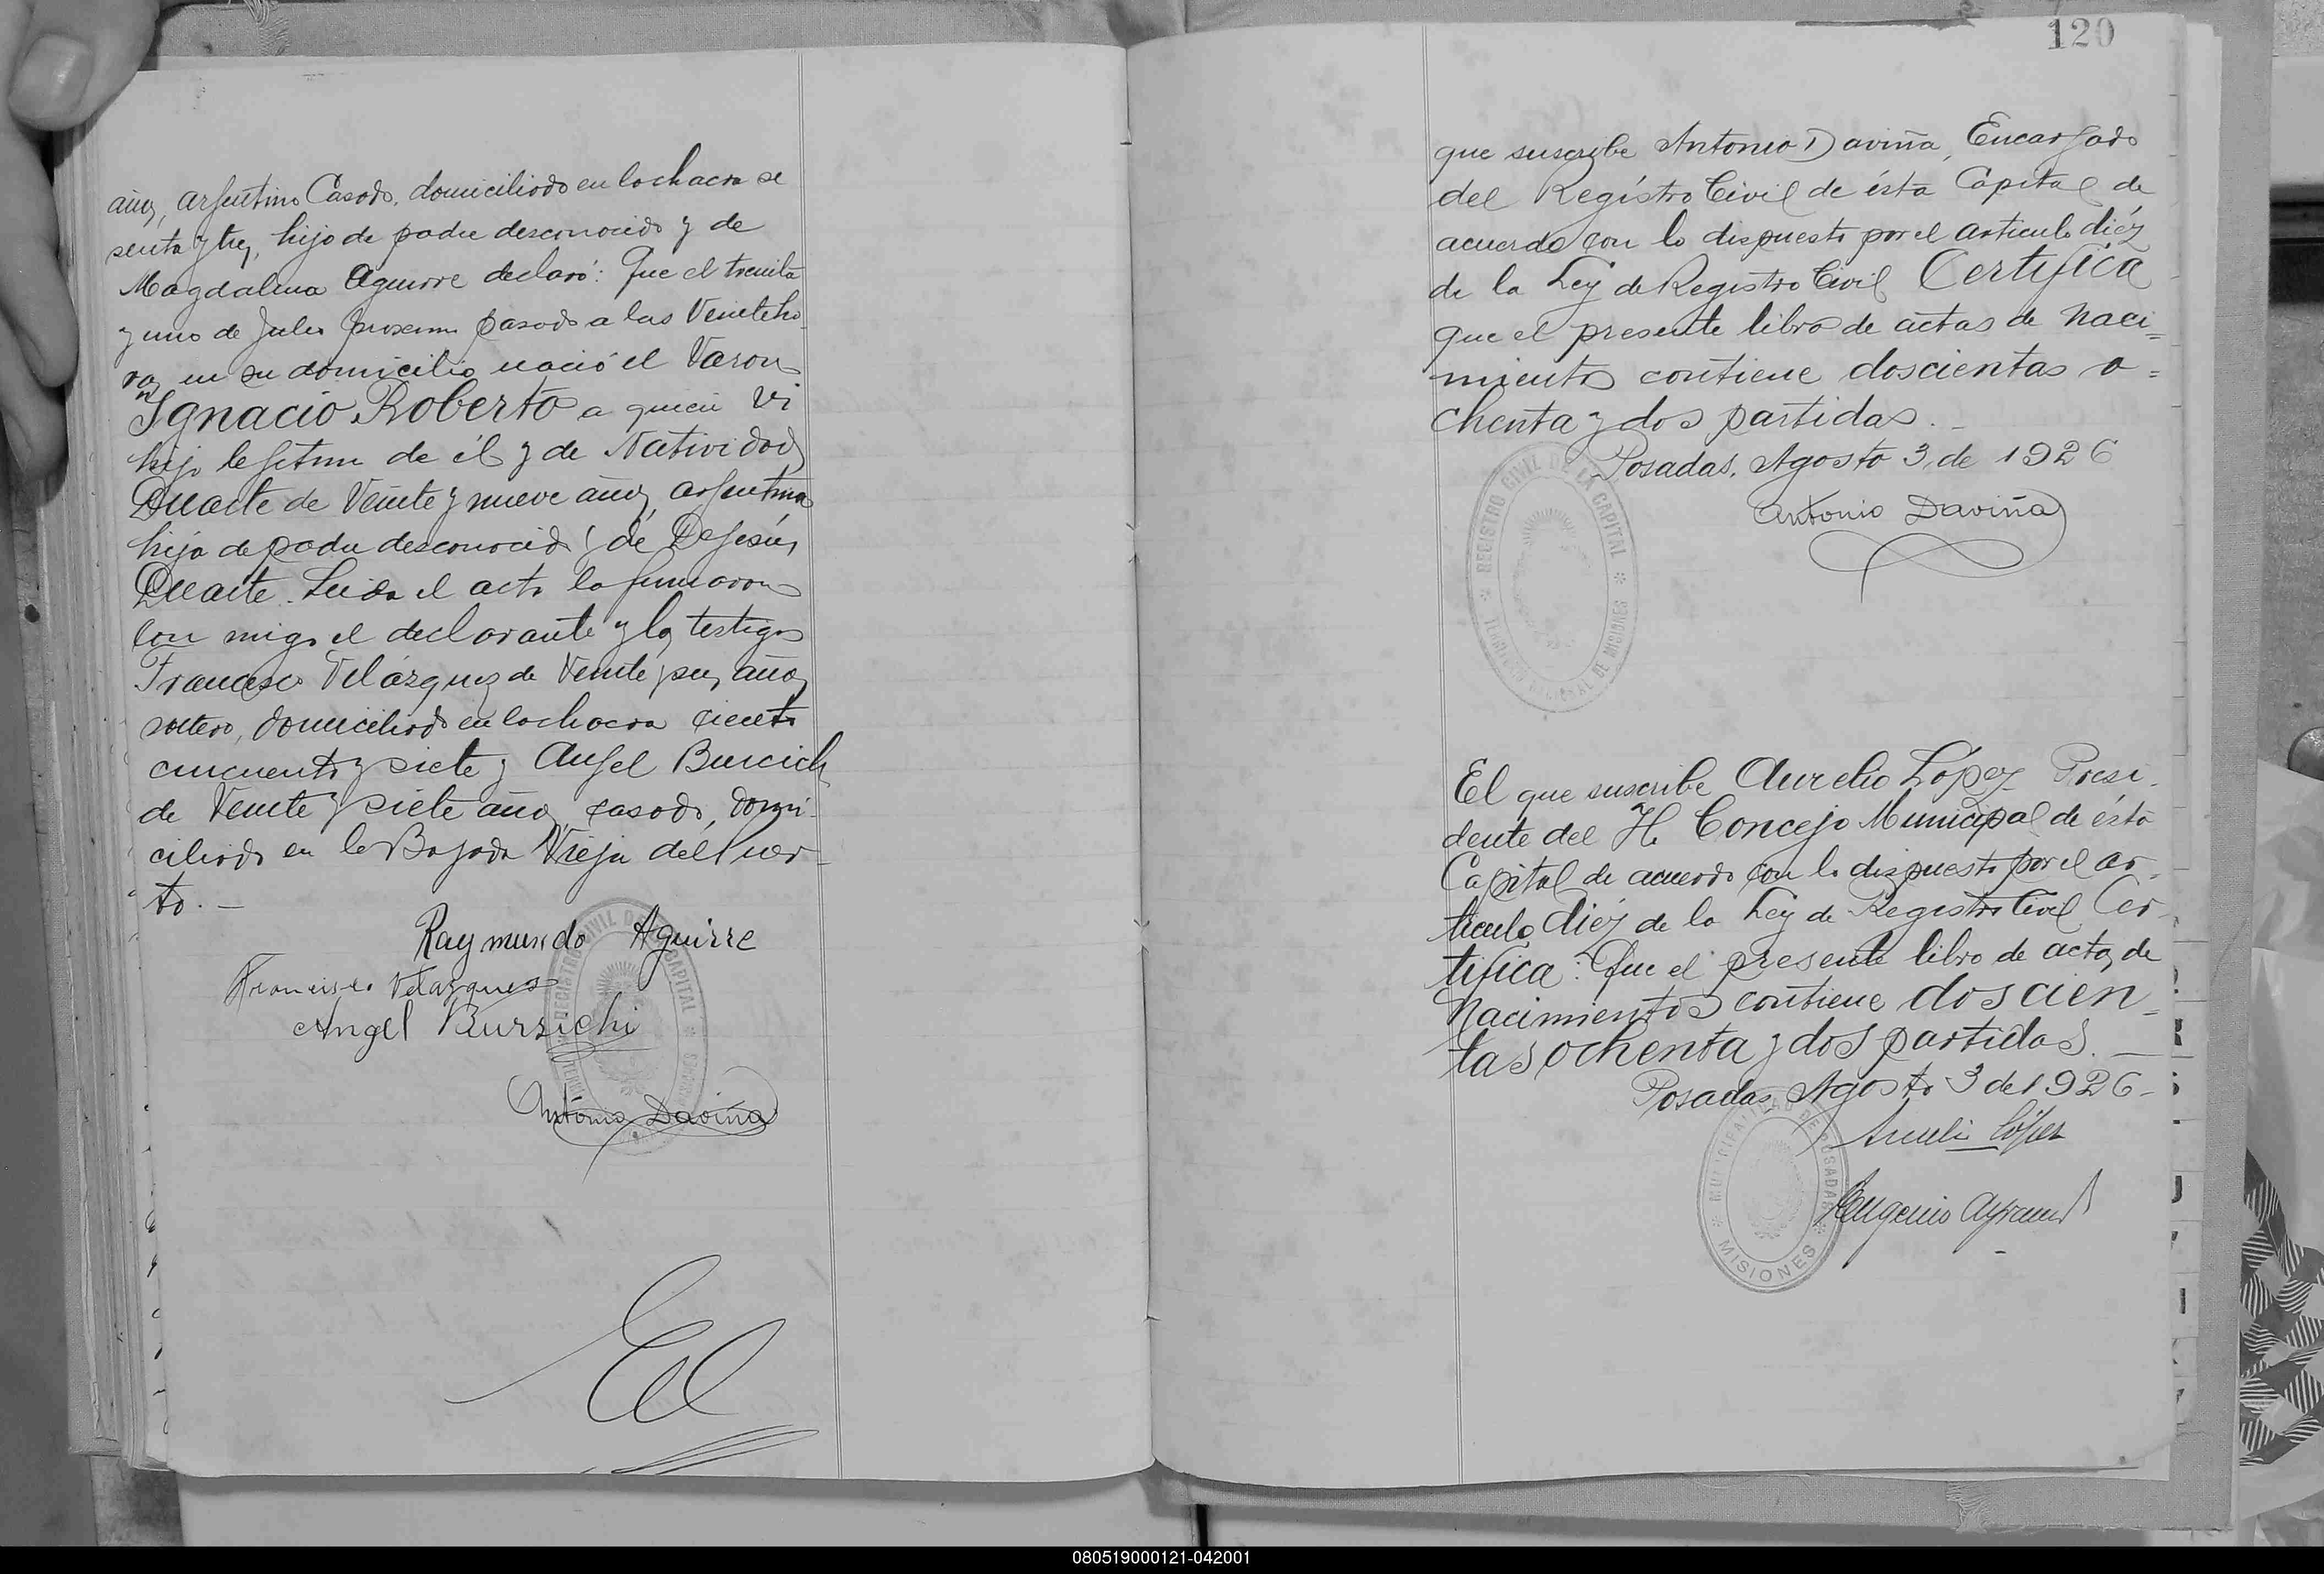 años, argentino Casado, domiciliado en la chacra se
senta y tres, hijo de padre desconocido y de
Magdalena Aguirre declaró: Que el treinta
y uno de Julio proximo pasado a las Veinte ho
ras en su domicilio nació el Varon
Ignacio Roberto a quien vi
hijo legitimo de él y de Natividad
Duarte de Veinte y nueve años, argentina
hija de padre desconocido y de Dejesús
Duarte. Leida el acta la firmaron
con migo el declarante y los testigos
Francisco Velázquez de Veinte y seis años
soltero, domiciliado en la chacra ciento
cincuenta y siete y Angel Burcich
de Veinte y siete años, casado, domi-
ciliado en la Bajada Vieja del Puer-
to.-
Raymundo Aguirre
Francisco Velazques
Angel Burzichi
Antonio Daviña
REGISTRO CIVIL DE LA CAPITAL
El
120
que suscribe Antonio Daviña, Encargado
del Registro Civil de ésta Capital de
acuerdo con lo dispuesto por el articulo diéz
de la Ley de Registro Civil Certifica
que el presente libro de actas de Naci=
mientos contiene doscientas o=
chenta y dos partidas.-
Posadas, Agosto 3, de 1926
Antonio Daviña
* REGISTRO CIVIL DE LA CAPITAL *
TERRITORIO NACIONAL DE MISIONES
El que suscribe Aurelio López Presi-
dente del H. Concejo Municipal de ésta
Capital de acuerdo con lo dispuesto por el ar-
ticulo diéz de la Ley de Registro Civil Cer-
tifica: Que el presente libro de actas de
Nacimientos contiene doscien-
tas ochenta y dos partidas.-
Posadas, Agosto 3 de 1926-
Aurelio López
Eugenio
* MUNICIPALIDAD DE POSADAS *
MISIONES
080519000121-042001